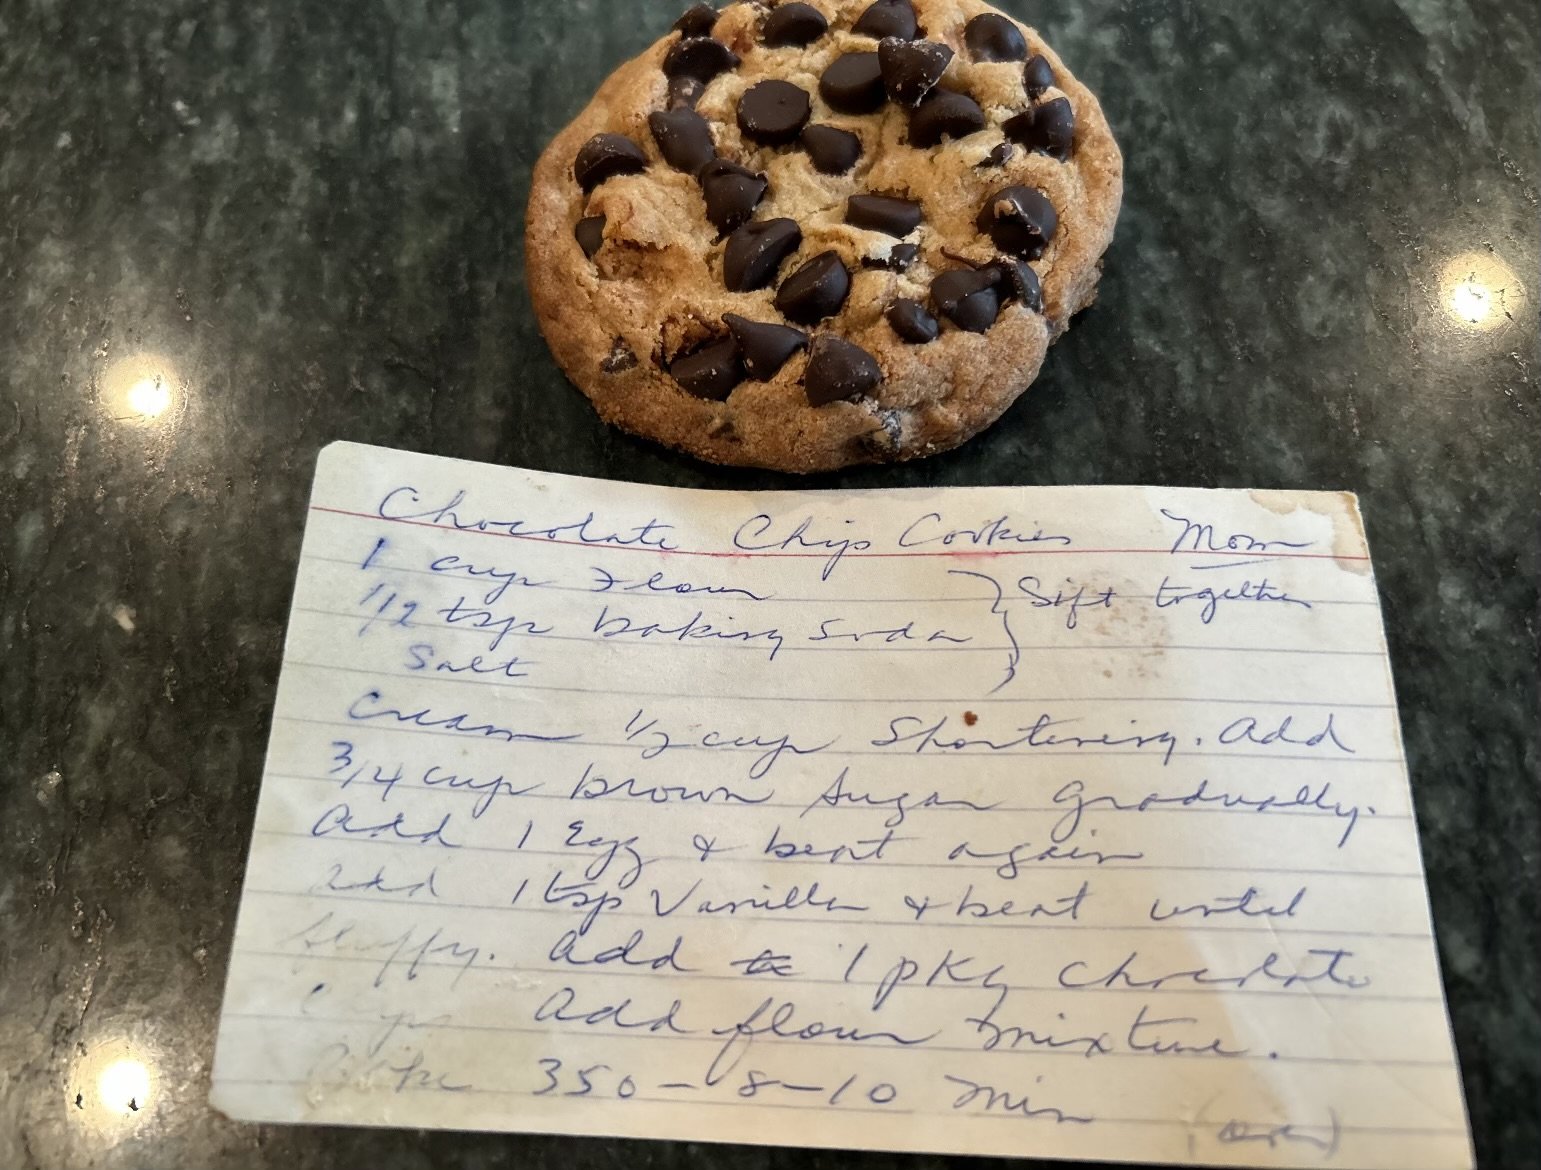 Chocolate Chip Cookies Mom
1 cup Flour
1/2 tsp baking soda } Sift together
Salt
Cream 1/2 cup Shortening. Add
3/4 cup brown sugar gradually.
Add 1 Egg & beat again
Add 1 tsp Vanilla & beat until
fluffy. Add 1 pkg chocolate
Chips Add flour mixture.
Bake 350 - 8-10 min
(over)